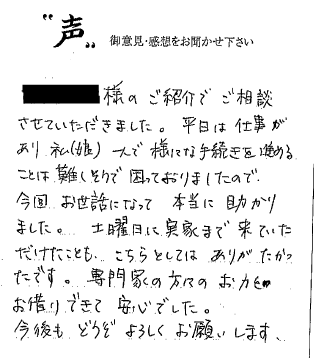 "声"
御意見・感想をお聞かせ下さい
様のご紹介でご相談
させていただきました。平日は仕事が
あり私(娘)一人で様々な手続きを進める
ことは難しそうで困っておりましたので、
今回お世話になって本当に助かり
ました。土曜日に実家まで来ていた
だけたことも、こちらとしてはありがたかっ
たです。専門家の方々のお力を
お借りできて安心でした。
今後もどうぞよろしくお願いします、